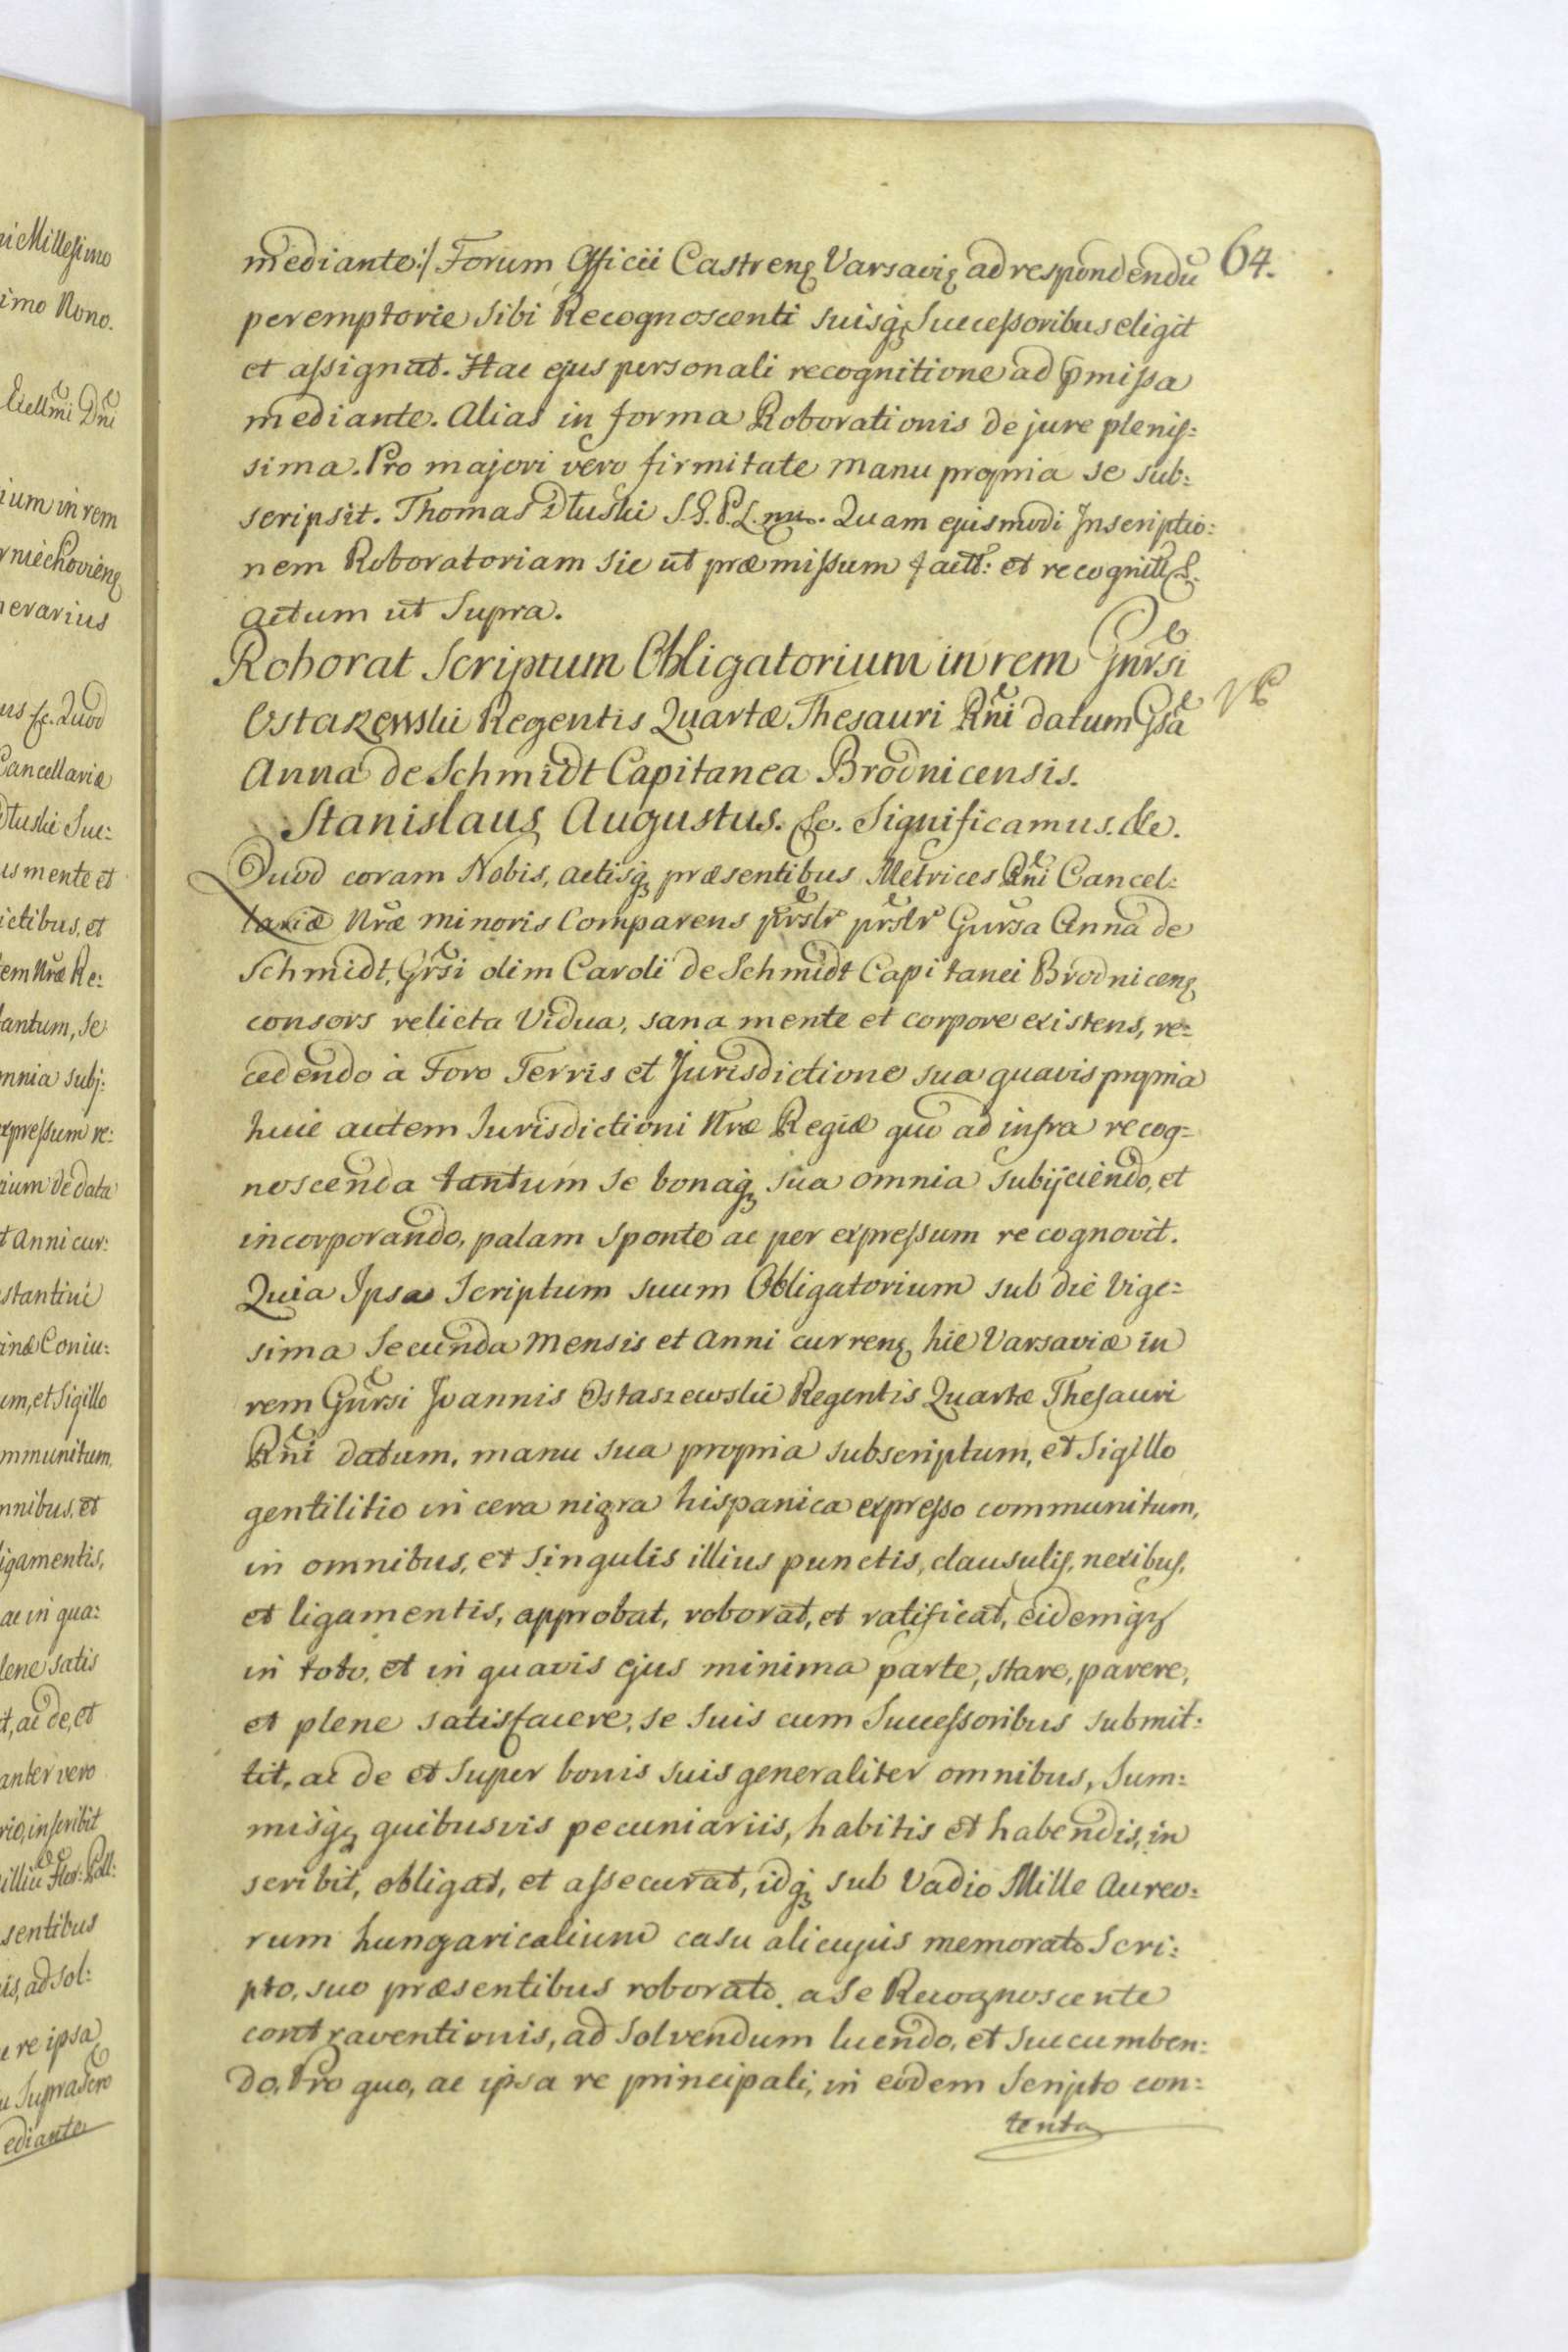 mediante:/ Forum Officii Castrenꝫ Varsaviꝫ ad respondendū 64.
peremptorie sibi Recognoscenti suisqꝫ Successoribus eligit
et assignat. Hac ejus personali recognitione ad pmissa
mediante. Alias in forma Roborationis de jure plenis:
sima. Pro majori vero firmitate manu propria se sub:
scripsit. Thomas Dłuski S.G.P.L. mp. Quam ejusmodi Inscriptio:
nem Roboratoriam sic ut præmissum factt: et recognitt &.
Actum ut Supra.
Roborat Scriptum Obligatorium in rem Gnrsi
Ostaszewski Regentis Quartæ Thesauri Rni datum Gsa
Anna de Schmidt Capitanea Brodnicensis.
Stanislaus Augustus. &c. Significamus. &c.
Quod coram Nobis, Actisqꝫ præsentibus Metrices Rni Cancel:
lariæ Nræ minoris Comparens prslr prslr Gnrsa Anna de
Schmidt, Grsi olim Caroli de Schmidt Capitanei Brodnicenꝫ
consors relicta Vidua, sana mente et corpore existens, re:
cedendo à Foro Terris et Jurisdictione sua quavis propria
huic autem Jurisdictioni Nræ Regiæ quo ad infra recog:
noscenda tantum se bonaqꝫ sua omnia subijciendo, et
incorporando, palam sponte ac per expressum recognovit.
Quia Ipsa Scriptum suum Obligatorium sub die Vige:
sima Secunda Mensis et Anni currenꝫ hic Varsaviæ in
rem Gnrsi Joannis Ostaszewski Regentis Quartæ Thesauri
Rni datum, manu sua propria subscriptum, et Sigillo
gentilitio in cera nigra hispanica expresso communitum,
in omnibus, et singulis illius punctis, clausulis, nexibus,
et ligamentis, approbat, roborat, et ratificat, eidemqꝫ
in toto, et in quavis ejus minima parte, stare, parere,
et plene satisfacere, se suis cum Successoribus submit:
tit, ac de et super bonis suis generaliter omnibus, Sum:
misqꝫ quibusvis pecuniariis, habitis et habendis, in
scribit, obligat, et assecurat, idqꝫ sub Vadio Mille Aureo:
rum hungaricalium casu alicujus memorato Scri:
pto, suo præsentibus roborato, a se Recognoscente
contraventionis, ad solvendum luendo, et succumben:
do, Pro quo, ac ipsa re principali, in eodem Scripto con:
tenta